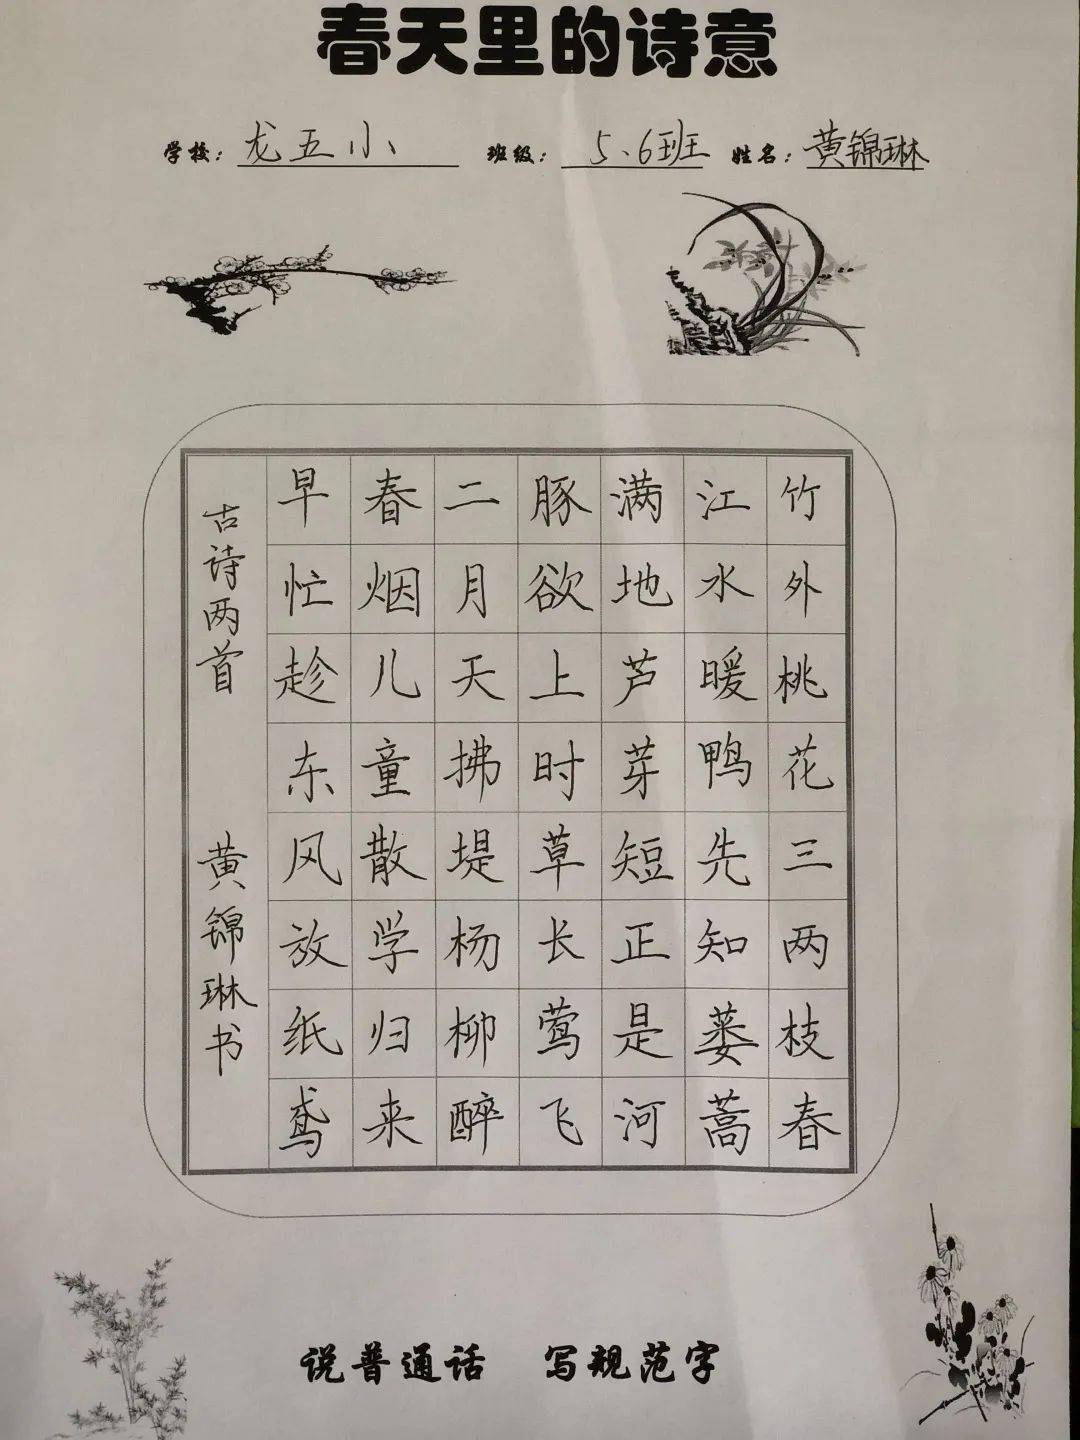 春天里的诗意
学校：龙五小 班级：5.6班 姓名：黄锦琳
竹外桃花三两枝春
江水暖鸭先知蒌蒿
满地芦芽短正是河
豚欲上时草长莺飞
二月天拂堤杨柳醉
春烟儿童散学归来
早忙趁东风放纸鸢
古诗两首 黄锦琳书
说普通话 写规范字